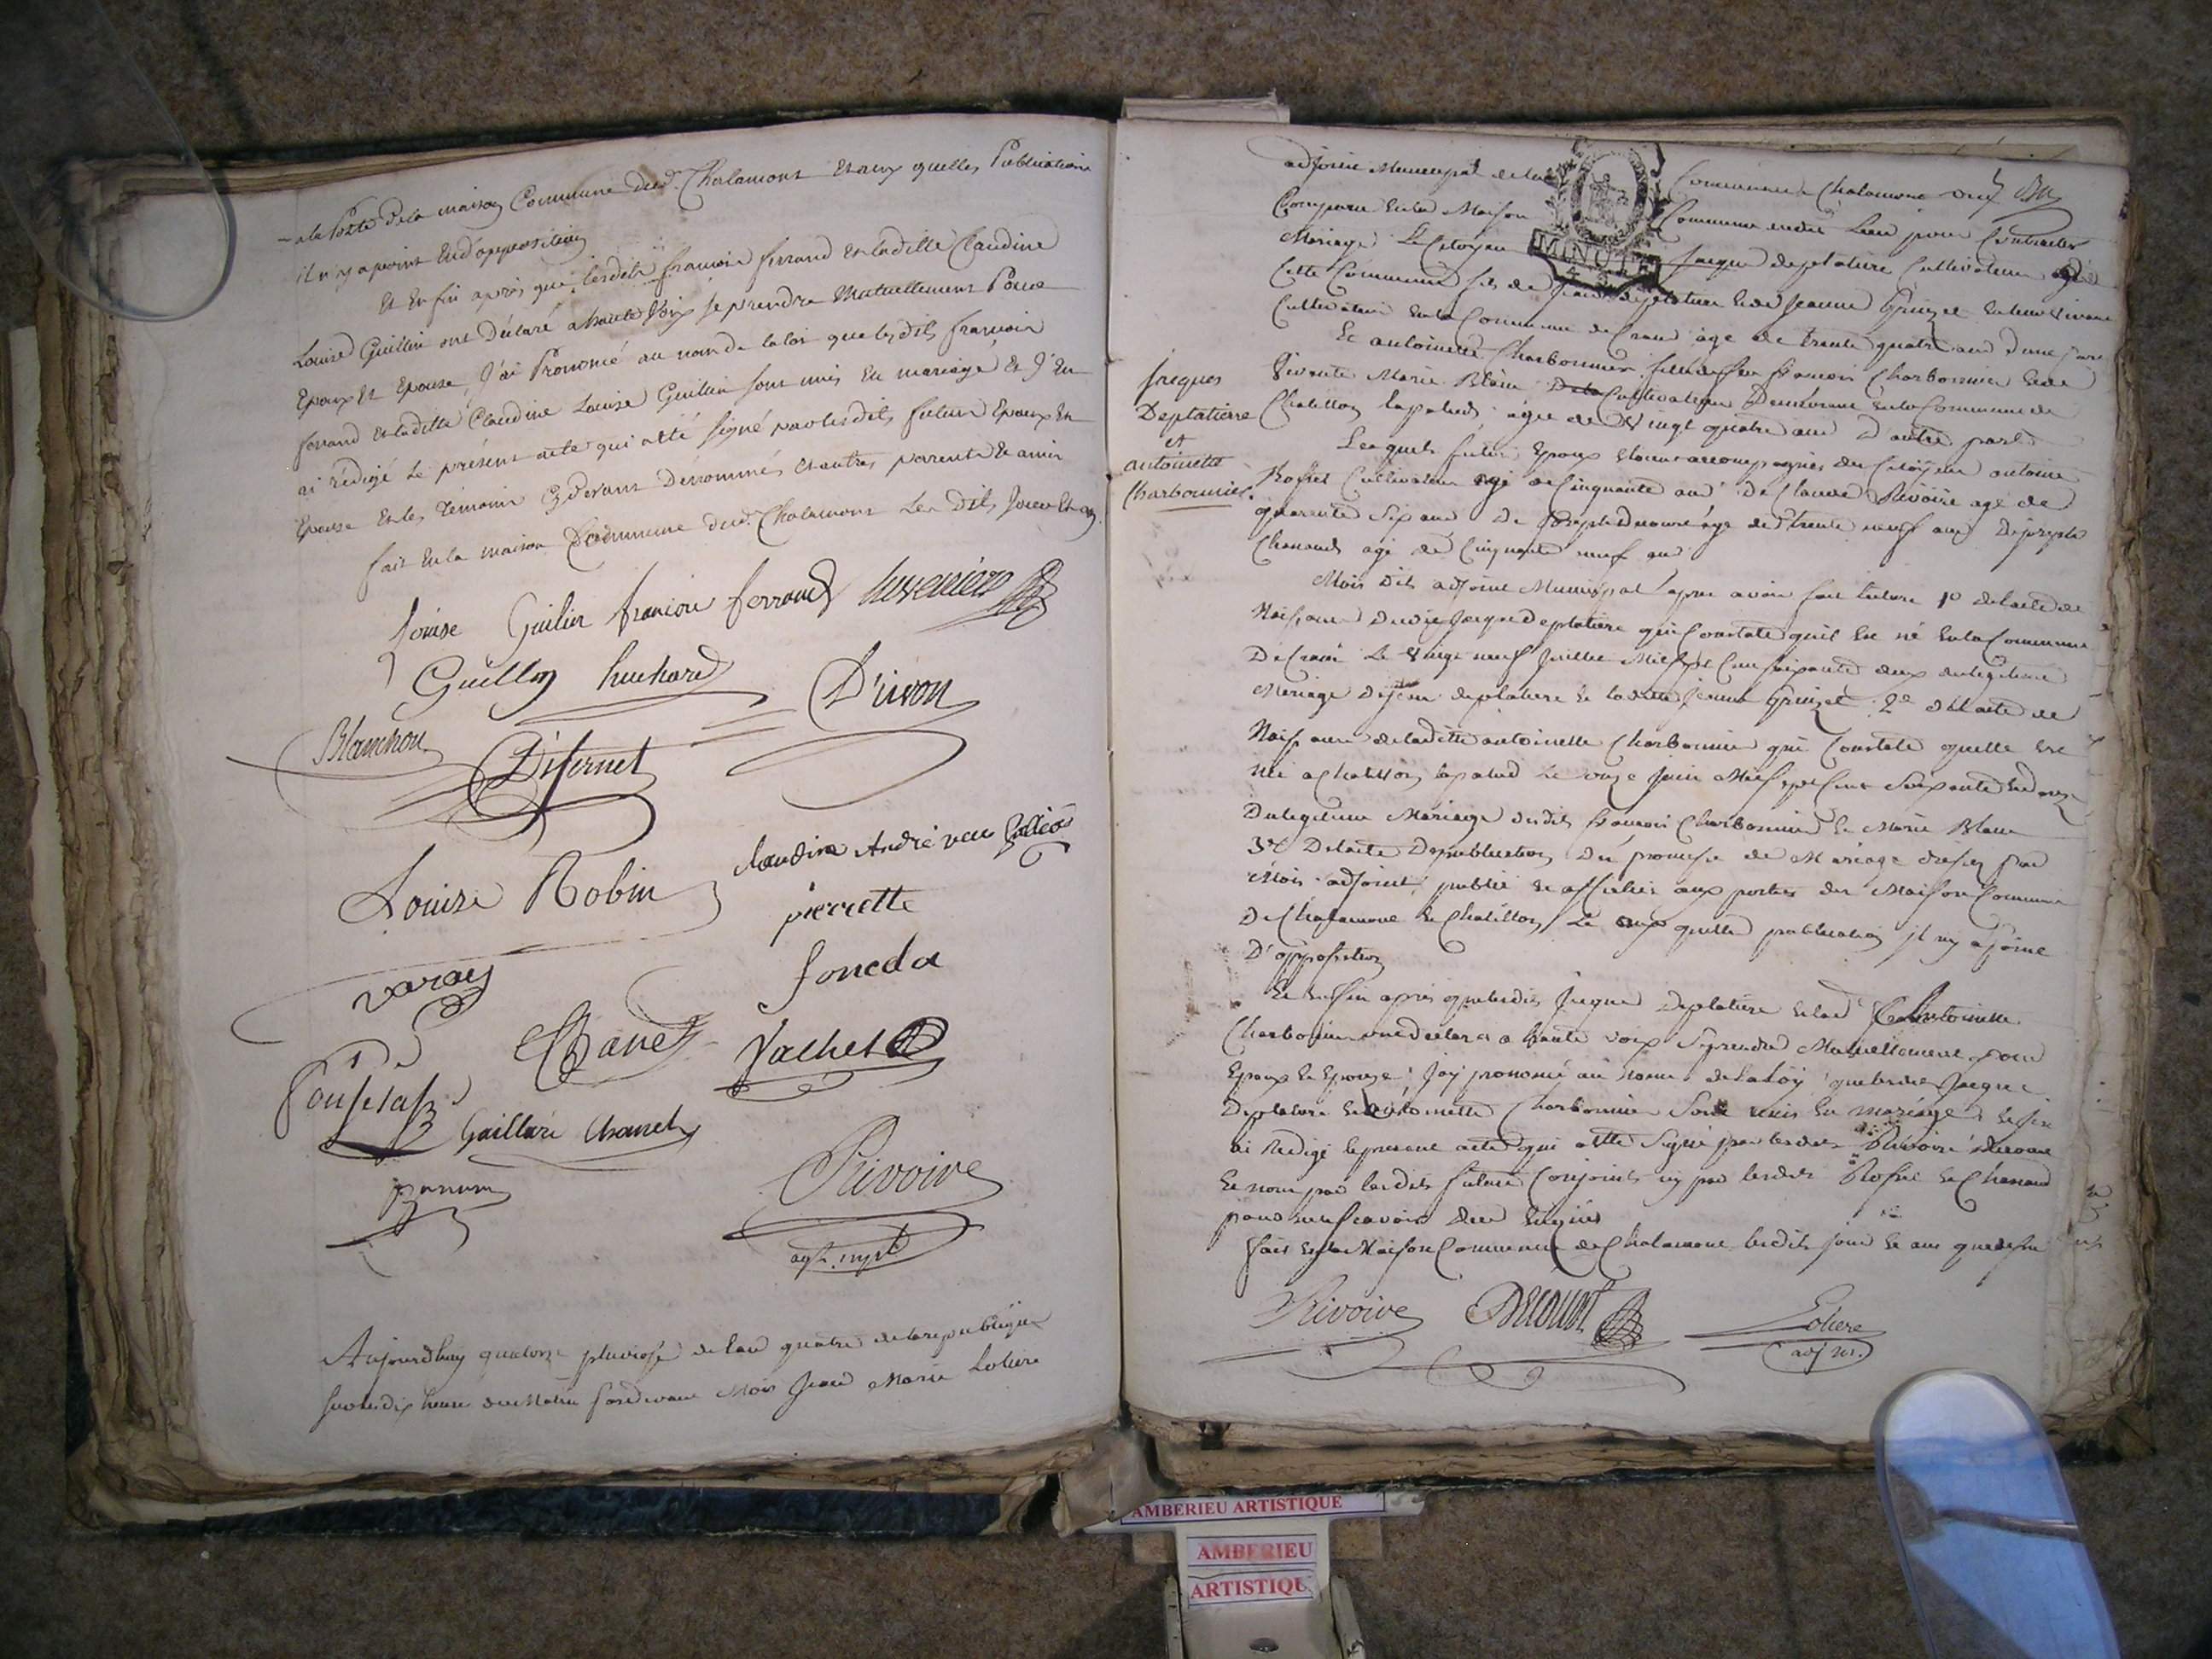 a la Porte De la maison Commune dud. Chalamont Et aux quelles Publications
il n'y a point Eu d'opposition
Et Enfin après que lesdits françois ferrand Et laditte Claudine
Louise Guillin ont Déclaré a haute Voix se prendre Mutuellement Pour
Epoux Et Epouse, J'ai Prononcé au nom de la loi que lesdits françois
ferrand Et laditte Claudine Louise Guillin sont unis En mariage Et J'En
ai rédigé Le présent acte qui a été signé par lesdits futurs Epoux Et
Epouse Et les Témoins Cy devant Dénommés Et autres parents & amis
fait En la maison Commune dud. Chalamont Les Dits Jour Et an
Louise Guilin francois ferrand
Guillin huchard D'ivon
Blanchon Difernet
Louise Robin Claudine André
pierrette
varay foncda
Chanel Vachet
Gaillard Chanel
Rivoire
agt. mpl
Aujourdhuy quatorze pluviose de lan quatre de la republique
sur les dix heures du Matin pardevant Mois Jean Marie Loliere
adjoint Municipal de la Commune Chalamont
Comparu En la Maison Commune dudit Lieu pour Contracter
MINUTE
Mariage Le Citoyen Jacque deplatiere Cultivateur
Cette Commune fils de Jean deplatiere & de Jeanne Gruizet En leur vivant
Cultivateur En la Commune de Crans agé de trente quatre ans d'une part
Et antoinette Charbonnier fille de feu francois Charbonnier & de
Jacques
Deplatierre
et
antoinette
Charbonnier
Vivante Marie Blanc De la Cultivateur Demeurant En la Commune de
Chatillon lapalud agée de Vingt quatre ans D'autre part
Lesquels futurs Epoux Etoient accompagnés du Citoyen antoine
Rofret Cultivateur agé de Cinquante ans De Claude Rivoire agé de
quarente Six ans De Joseph agé de trente neuf ans De joseph
Chanand agé de Cinquante neuf ans
Mois Dits adjoint Municipal apres avoir fait lecture 1º de lacte de
Naissance Dudit Jacque Deplatiere qui Constate quil Est né En la Commune
De Crans Le Vingt neuf Juillet Mil sept Cent soixante deux du legitime
Mariage De Jean deplatiere & la ditte Jeanne Gruizet 2º De lacte de
Naissance de laditte antoinette Charbonnier qui Constate quelle Est
née a Chatillon lapalud Le onze Juin Mil sept Cent Soixante Et onze
Du legitime Mariage dudits francois Charbonnier & Marie Blanc
3º De lacte De publication Du promesse de Mariage dressez par
Mois adjoint, publié & affichés aux portes des Maison Commune
De Chalamont & Chatillon, Et aux quelle publication il ny a point
D'opposition
Et Enfin après que lesdits Jacque Deplatiere & lad antoinette
Charbonnier ont declaré a haute voix Se prendre Mutuellement pour
Epoux & Epouze, Jay prononcé au Nom de la Loy que lesdits Jacque
Deplatiere & antoinette Charbonnier Sont unis En mariage &
ai Redigé le present acte qui a Eté Signé par lesdits Rivoire
& non par lesdits futurs Conjoints ny par lesdits Rofret & Chanand
pour ne le scavoir
Fait En la Maison Commune de Chalamont lesdits jour & an que dessus
Rivoire Loliere
adj m.
AMBERIEU ARTISTIQUE
AMBERIEU
ARTISTIQU